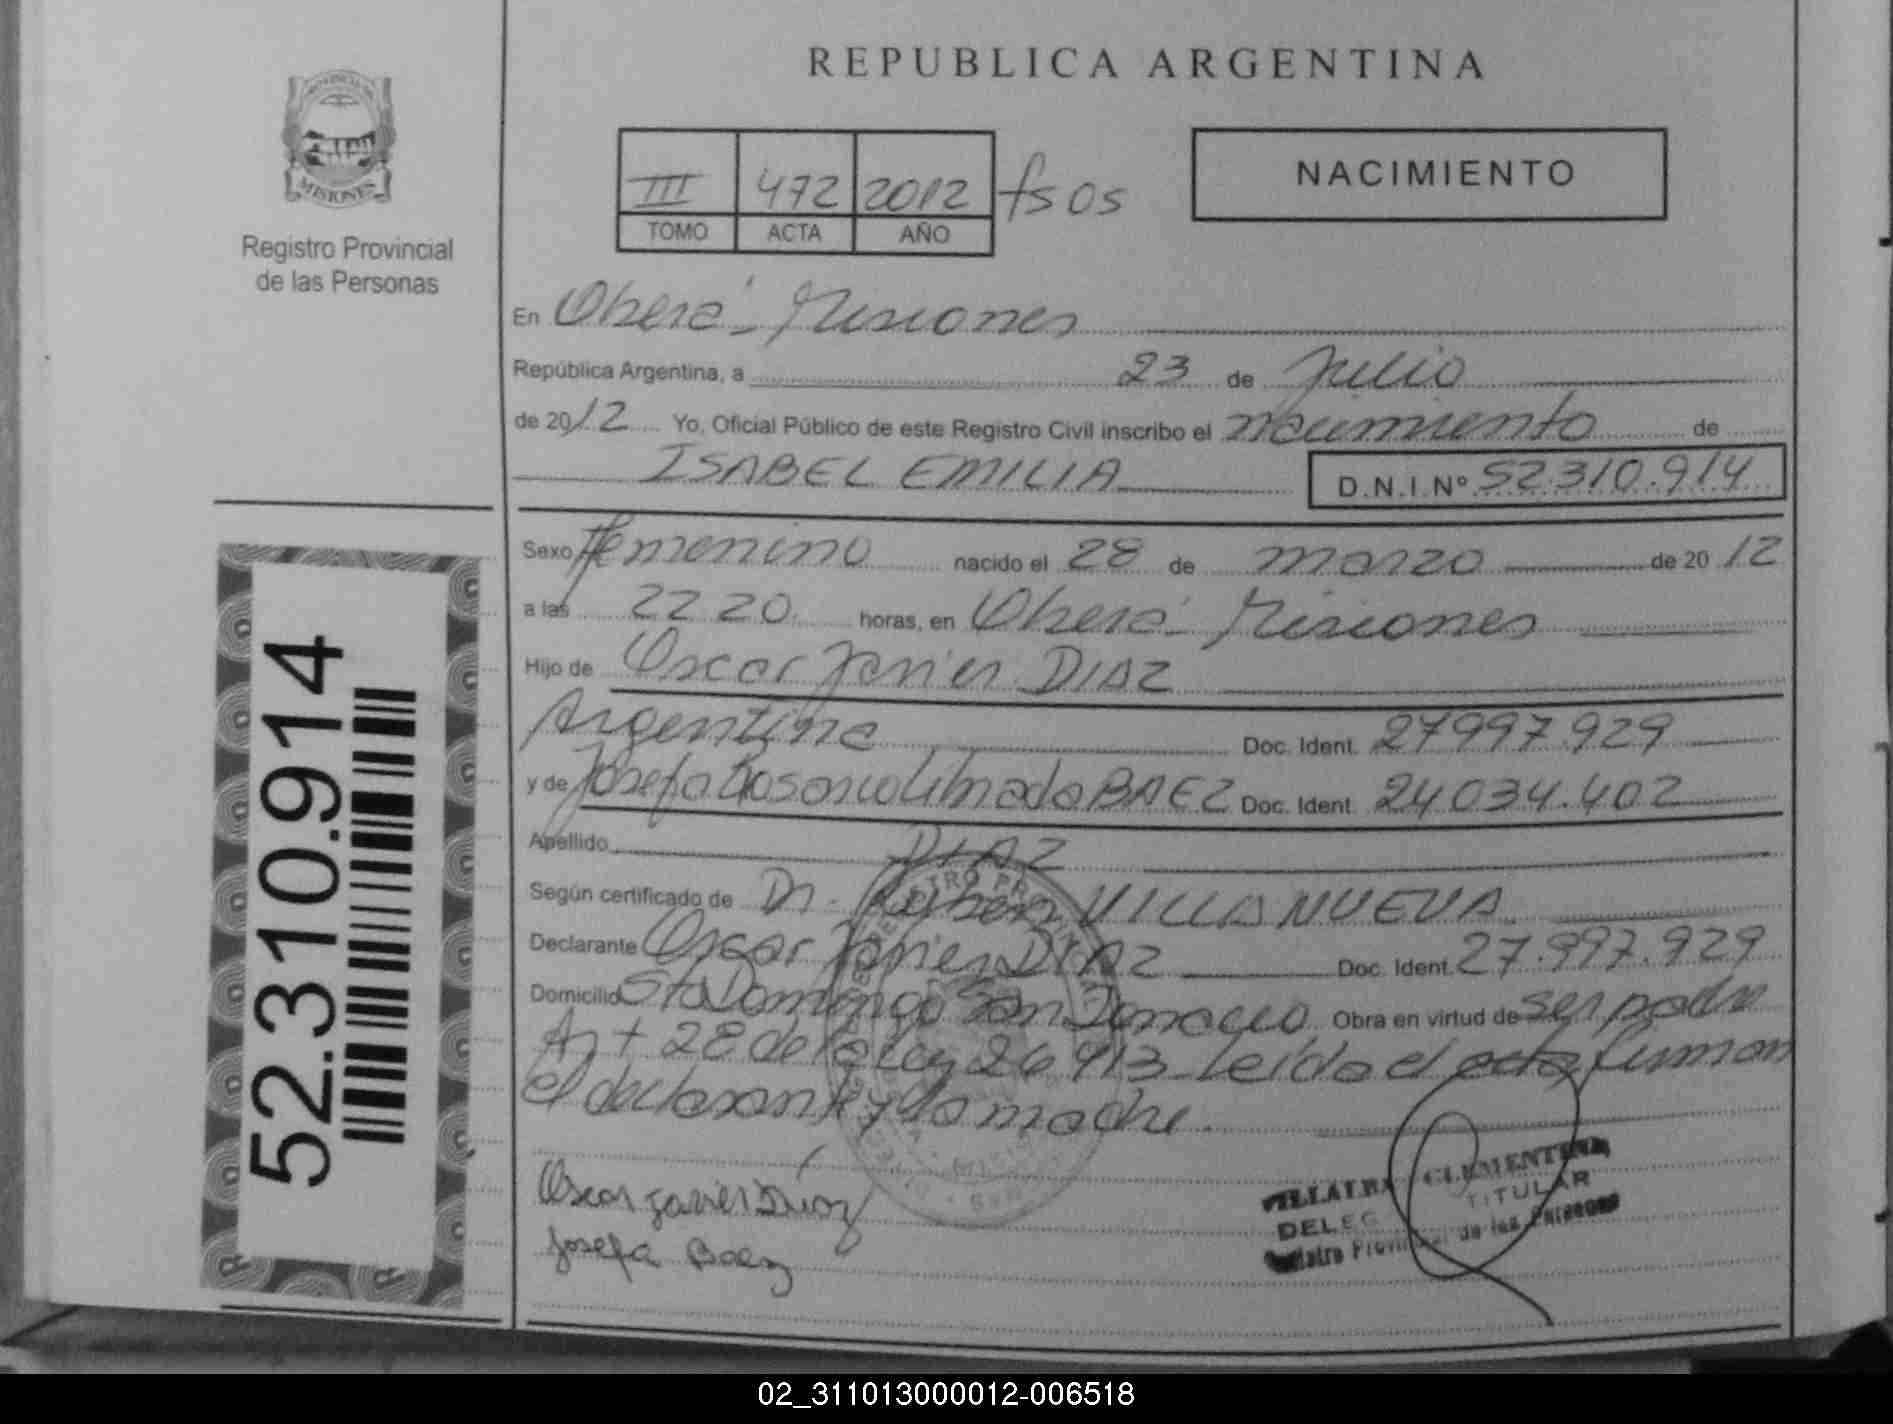 REPUBLICA ARGENTINA
PROVINCIA DE
MISIONES
Registro Provincial
de las Personas
III 472 2012 fs 05
TOMO ACTA AÑO
NACIMIENTO
En Oberá - Misiones
República Argentina, a 23 de Julio
de 2012 Yo, Oficial Público de este Registro Civil inscribo el nacimiento de
ISABEL EMILIA D.N.I.Nº 52.310.914
Sexo Femenino nacido el 28 de marzo de 2012
a las 22 20 horas, en Oberá - Misiones
Hijo de Oscar Javier DIAZ
Argentina Doc. Ident. 27997.929
y de Josefa BAEZ Doc. Ident. 24034.402
Apellido DIAZ
Según certificado de Dr. Ruben VILLANUEVA
Declarante Oscar Javier DIAZ Doc. Ident. 27.997.929
Domicilio Sto Domingo San Ignacio Obra en virtud de ser padre
Art 28 de la Ley 26413 Leída el acta firman
el declarante y la madre.
Oscar Javier Diaz
Josefa Baez
CLEMENTINA
DELEG TITULAR
de las Personas
52.310.914
02_311013000012-006518